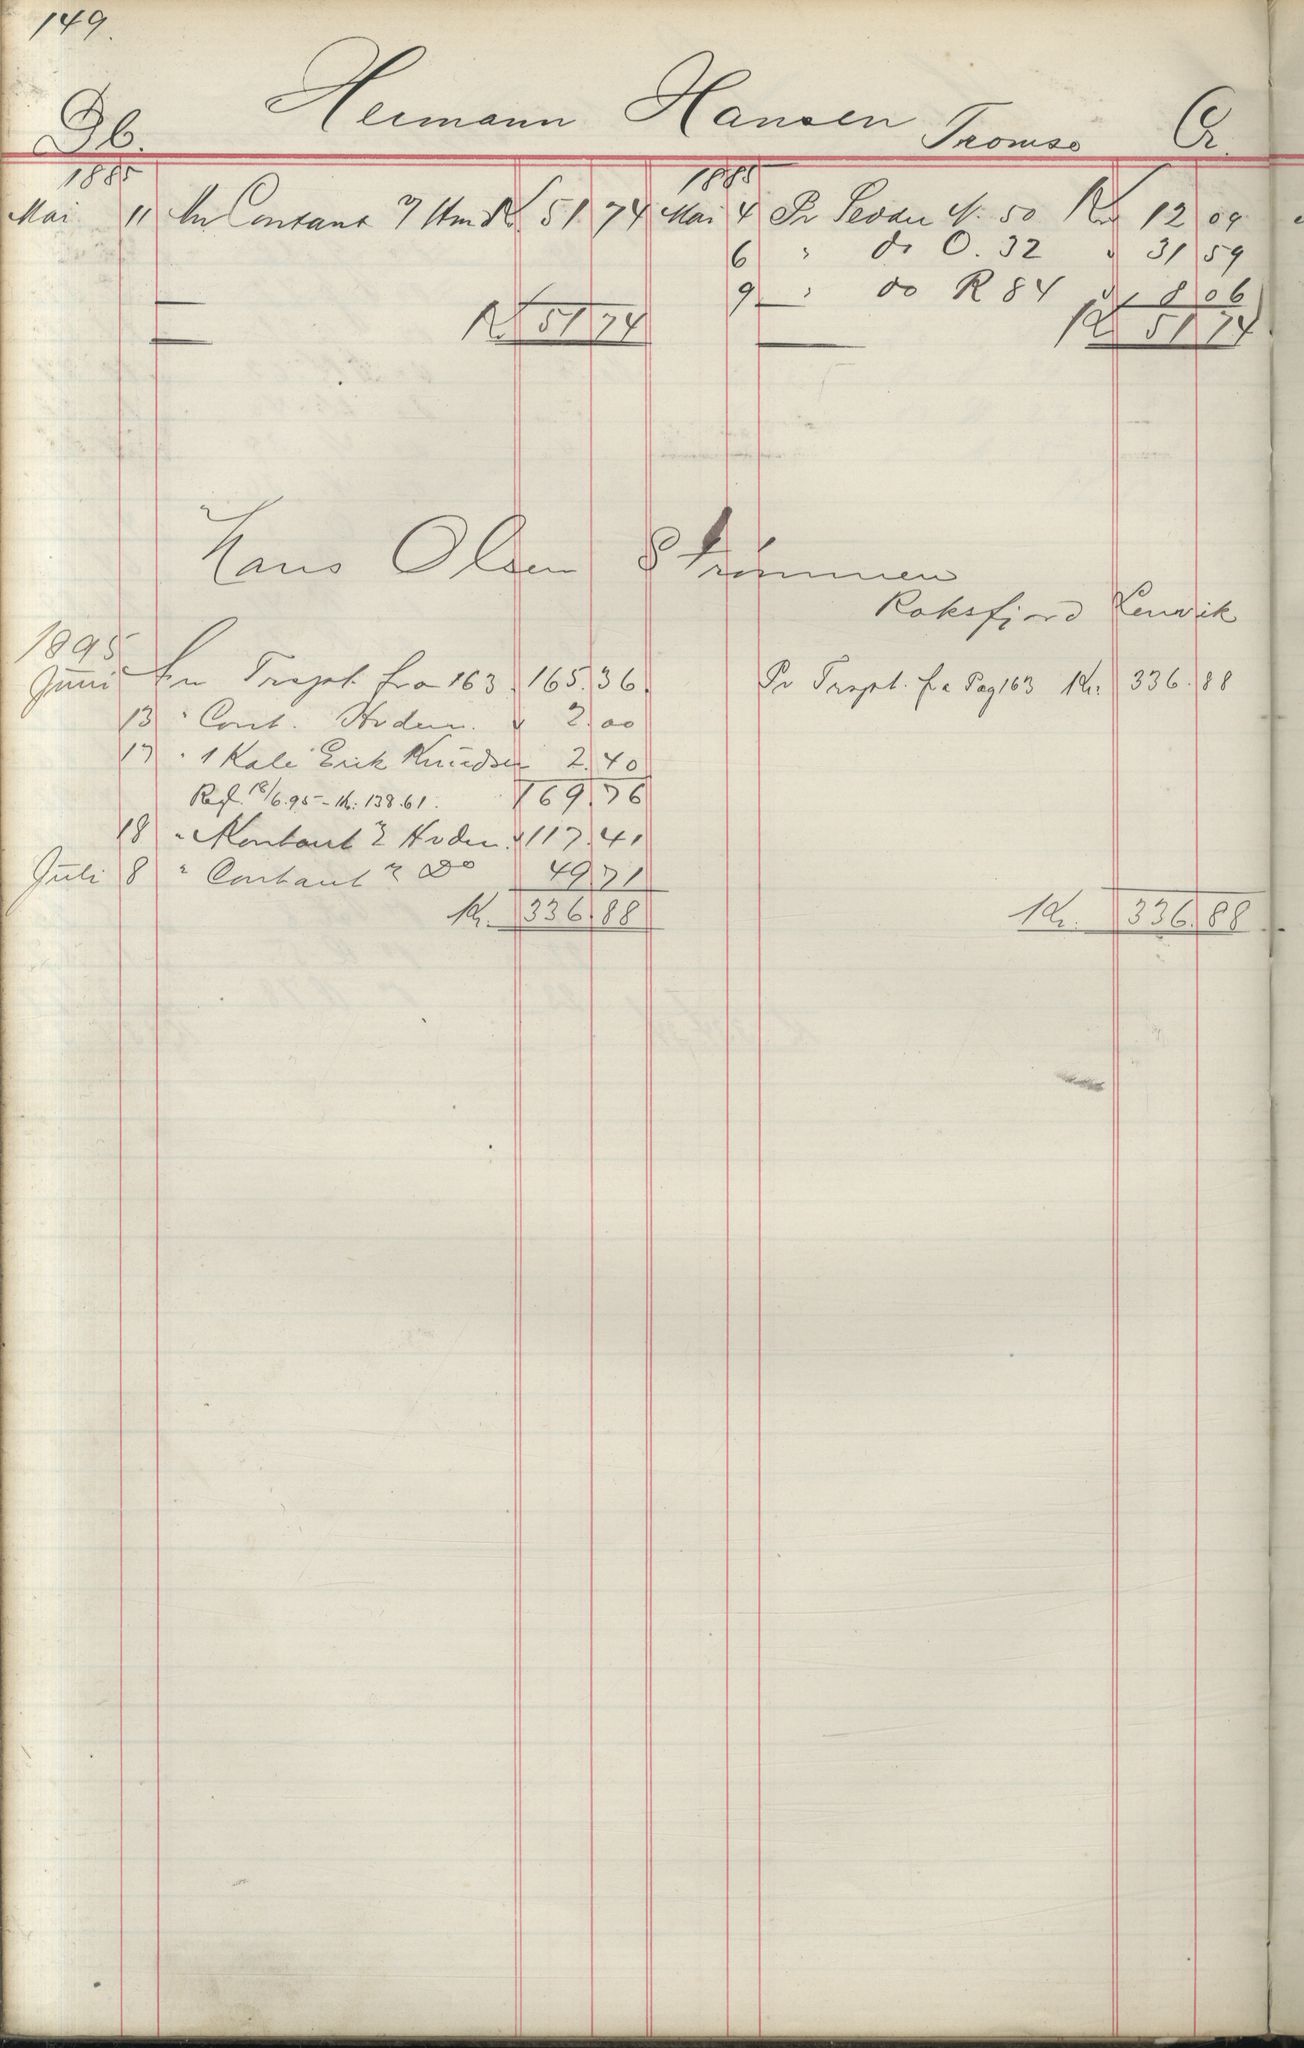 149.
Db. Hermann Hansen Tromsø Cr.
1885 1885
Mai 11 An Contant Kr. 51 74 Mai 4 Pr Seddel N. 50 Kr 12 09
6 " do O. 32 " 31 59
9 " do R 84 " 8 06
Kr. 51 74 Kr 51 74
Hans Olsen Strømmen
Roksfjord Lenvik
1895
Juni An Trspt. fra 163 165.36. Pr Trspt. fra Pag 163 Kr. 336.88
13 " Cont. Hoden. " 2.00
17 " 1 Kale Erik Knudsen 2.40
Regl. 18/6.95 - Kr. 138.61. 169.76
18 " Kontant Hoden. " 117.41
Juli 8 " Contant Do 49 71
Kr. 336.88 Kr. 336.88